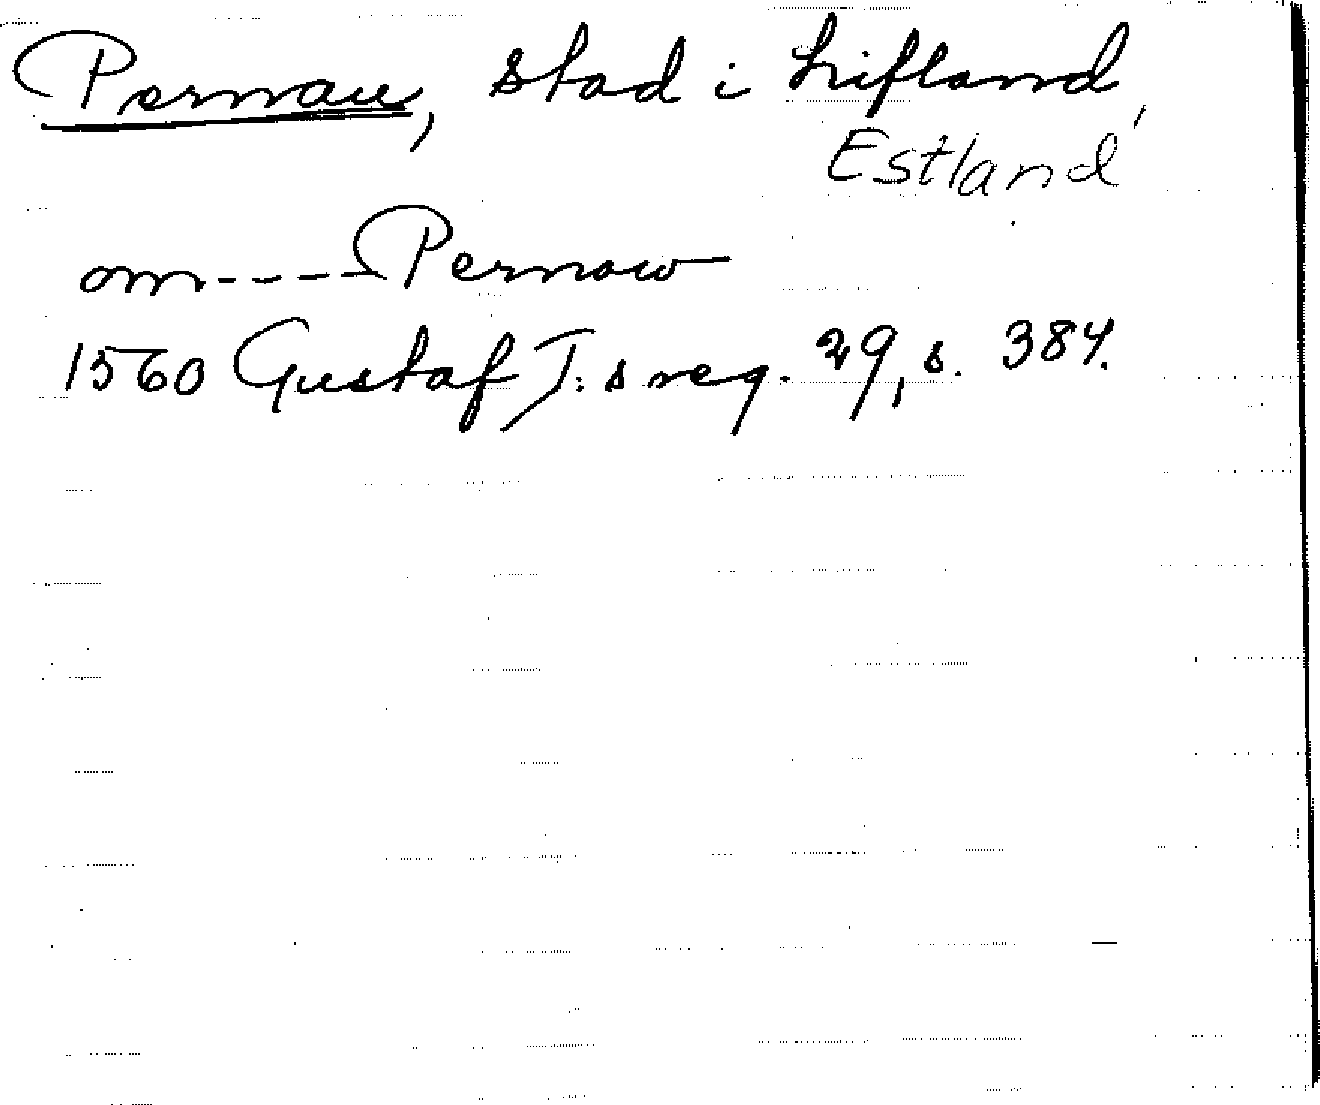 Pernau, stad i Lifland,
Estland
om----Pernow
1560 Gustaf I:s reg. 29, s. 384.